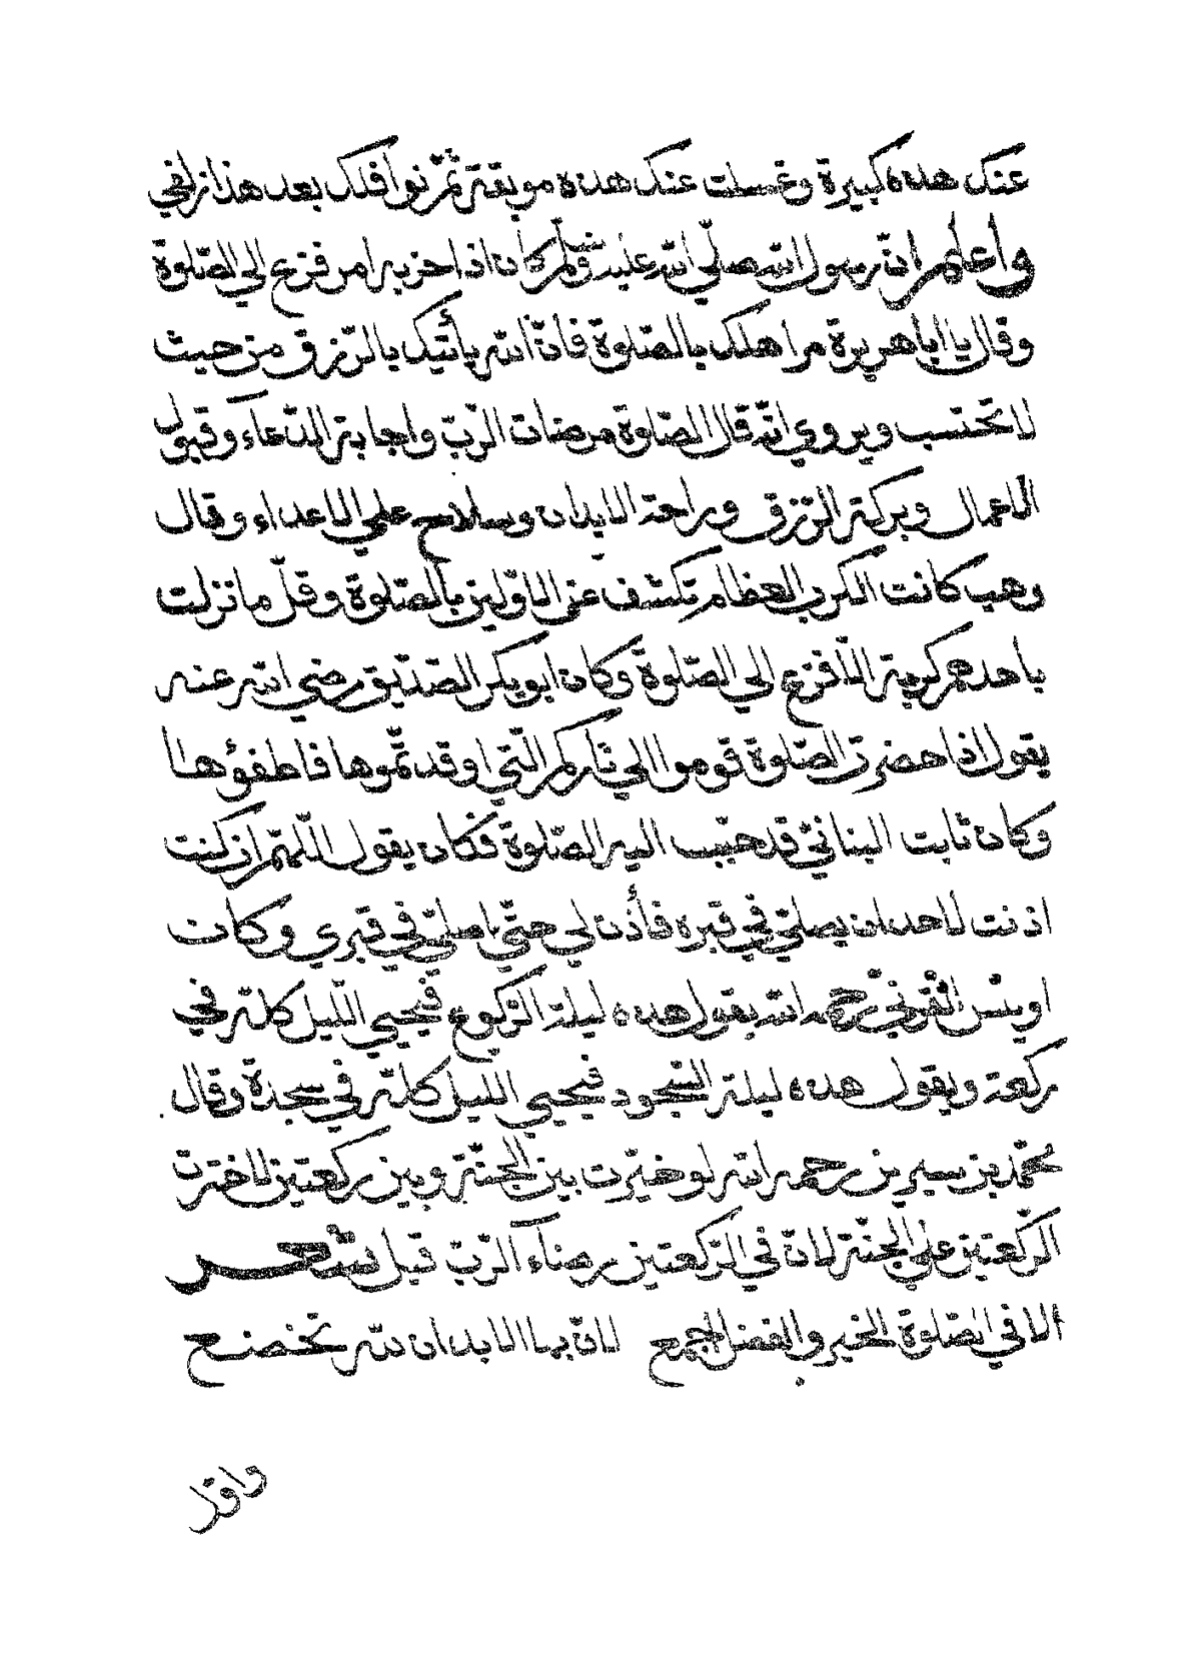 عنك هذه كبيرة وغسلت عنك هذه موبقة ثم نوافلك بعد هذا
واعلم ان رسول الله صلي الله عليه وسلم كان اذا حزبه امر فزع الي الصلوة
وقال يا ابا هريرة مر اهلك بالصلوة فان الله يأتيك بالرزق من حيث
لا تحتسب ويروي انه قال الصلوة مرضات الرب واجابة الدعاء وقبول
الاعمال وبركة الرزق وراحة الابدان وسلاح علي الاعداء وقال
وهب كانت الكرب العظام تكشف عن الاولين بالصلوة وقل ما نزلت
باحدهم كربة الا فزع الي الصلوة وكان ابو بكر الصديق رضي الله عنه
يقول اذا حضرت الصلوة قوموا الي ناركم التي اوقدتموها فاطفؤها
وكان ثابت البناني قد حبب اليه الصلوة فكان يقول اللهم ان كنت
اذنت لاحد ان يصلي في قبره فأذن لي حتي اصلي في قبري وكان
اويس القرني رحمه الله يقول هذه ليلة الركوع فيحيي الليل كله في
ركعة ويقول هذه ليلة السجود فيحيي الليل كله في سجدة وقال
محمد بن سيرين رحمه الله لو خيرت بين الجنة وبين ركعتين لاخترت
الركعتين علي الجنة لان في الركعتين رضاء الرب قيل شعر
الا في الصلوة الخير والفضل اجمع لان بها الابدان لله تخضع
واقل